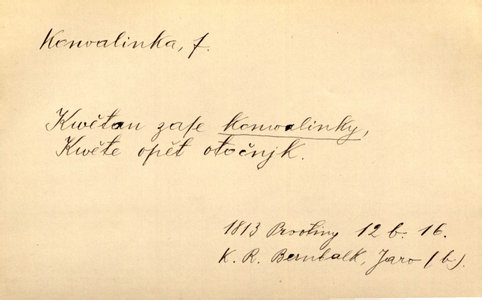 Konvalinka, f.
Kwětau zase konwalinky,
Kwěte opět otočnjk.
1813 Prvotiny 12 b. 16.
K. R. Bernbalk, Jaro (b).